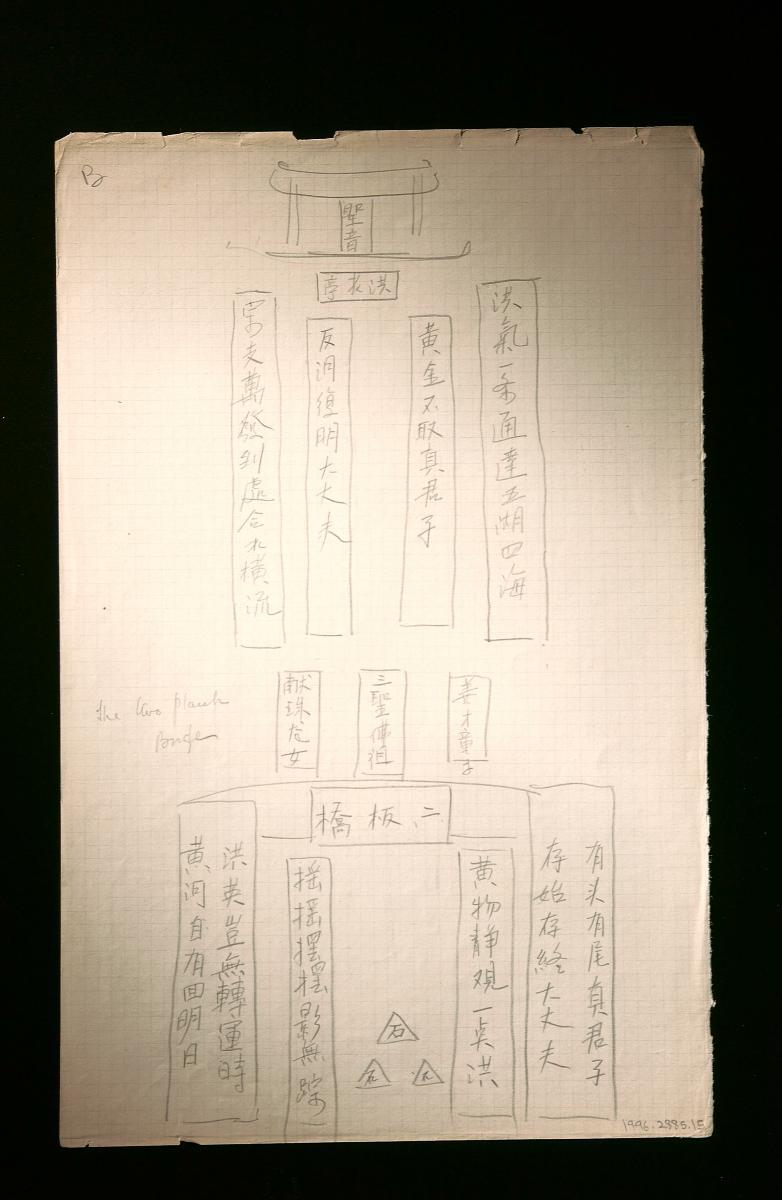 B
聖音
亭衣洪
洪氣一条通達五湖四海
黃金不取真君子
反汩復明大丈夫
一宗支萬發到處合水橫流
the two plank
Bridge
善才童子
三聖佛祖
献珠龙女
橋板二
有头有尾真君子
存始存終大丈夫
黄物静观一点洪
摇摇摆摆影無踪
洪英豈無轉運時
黄河自有回明日
石
石
石
1996.2885.15